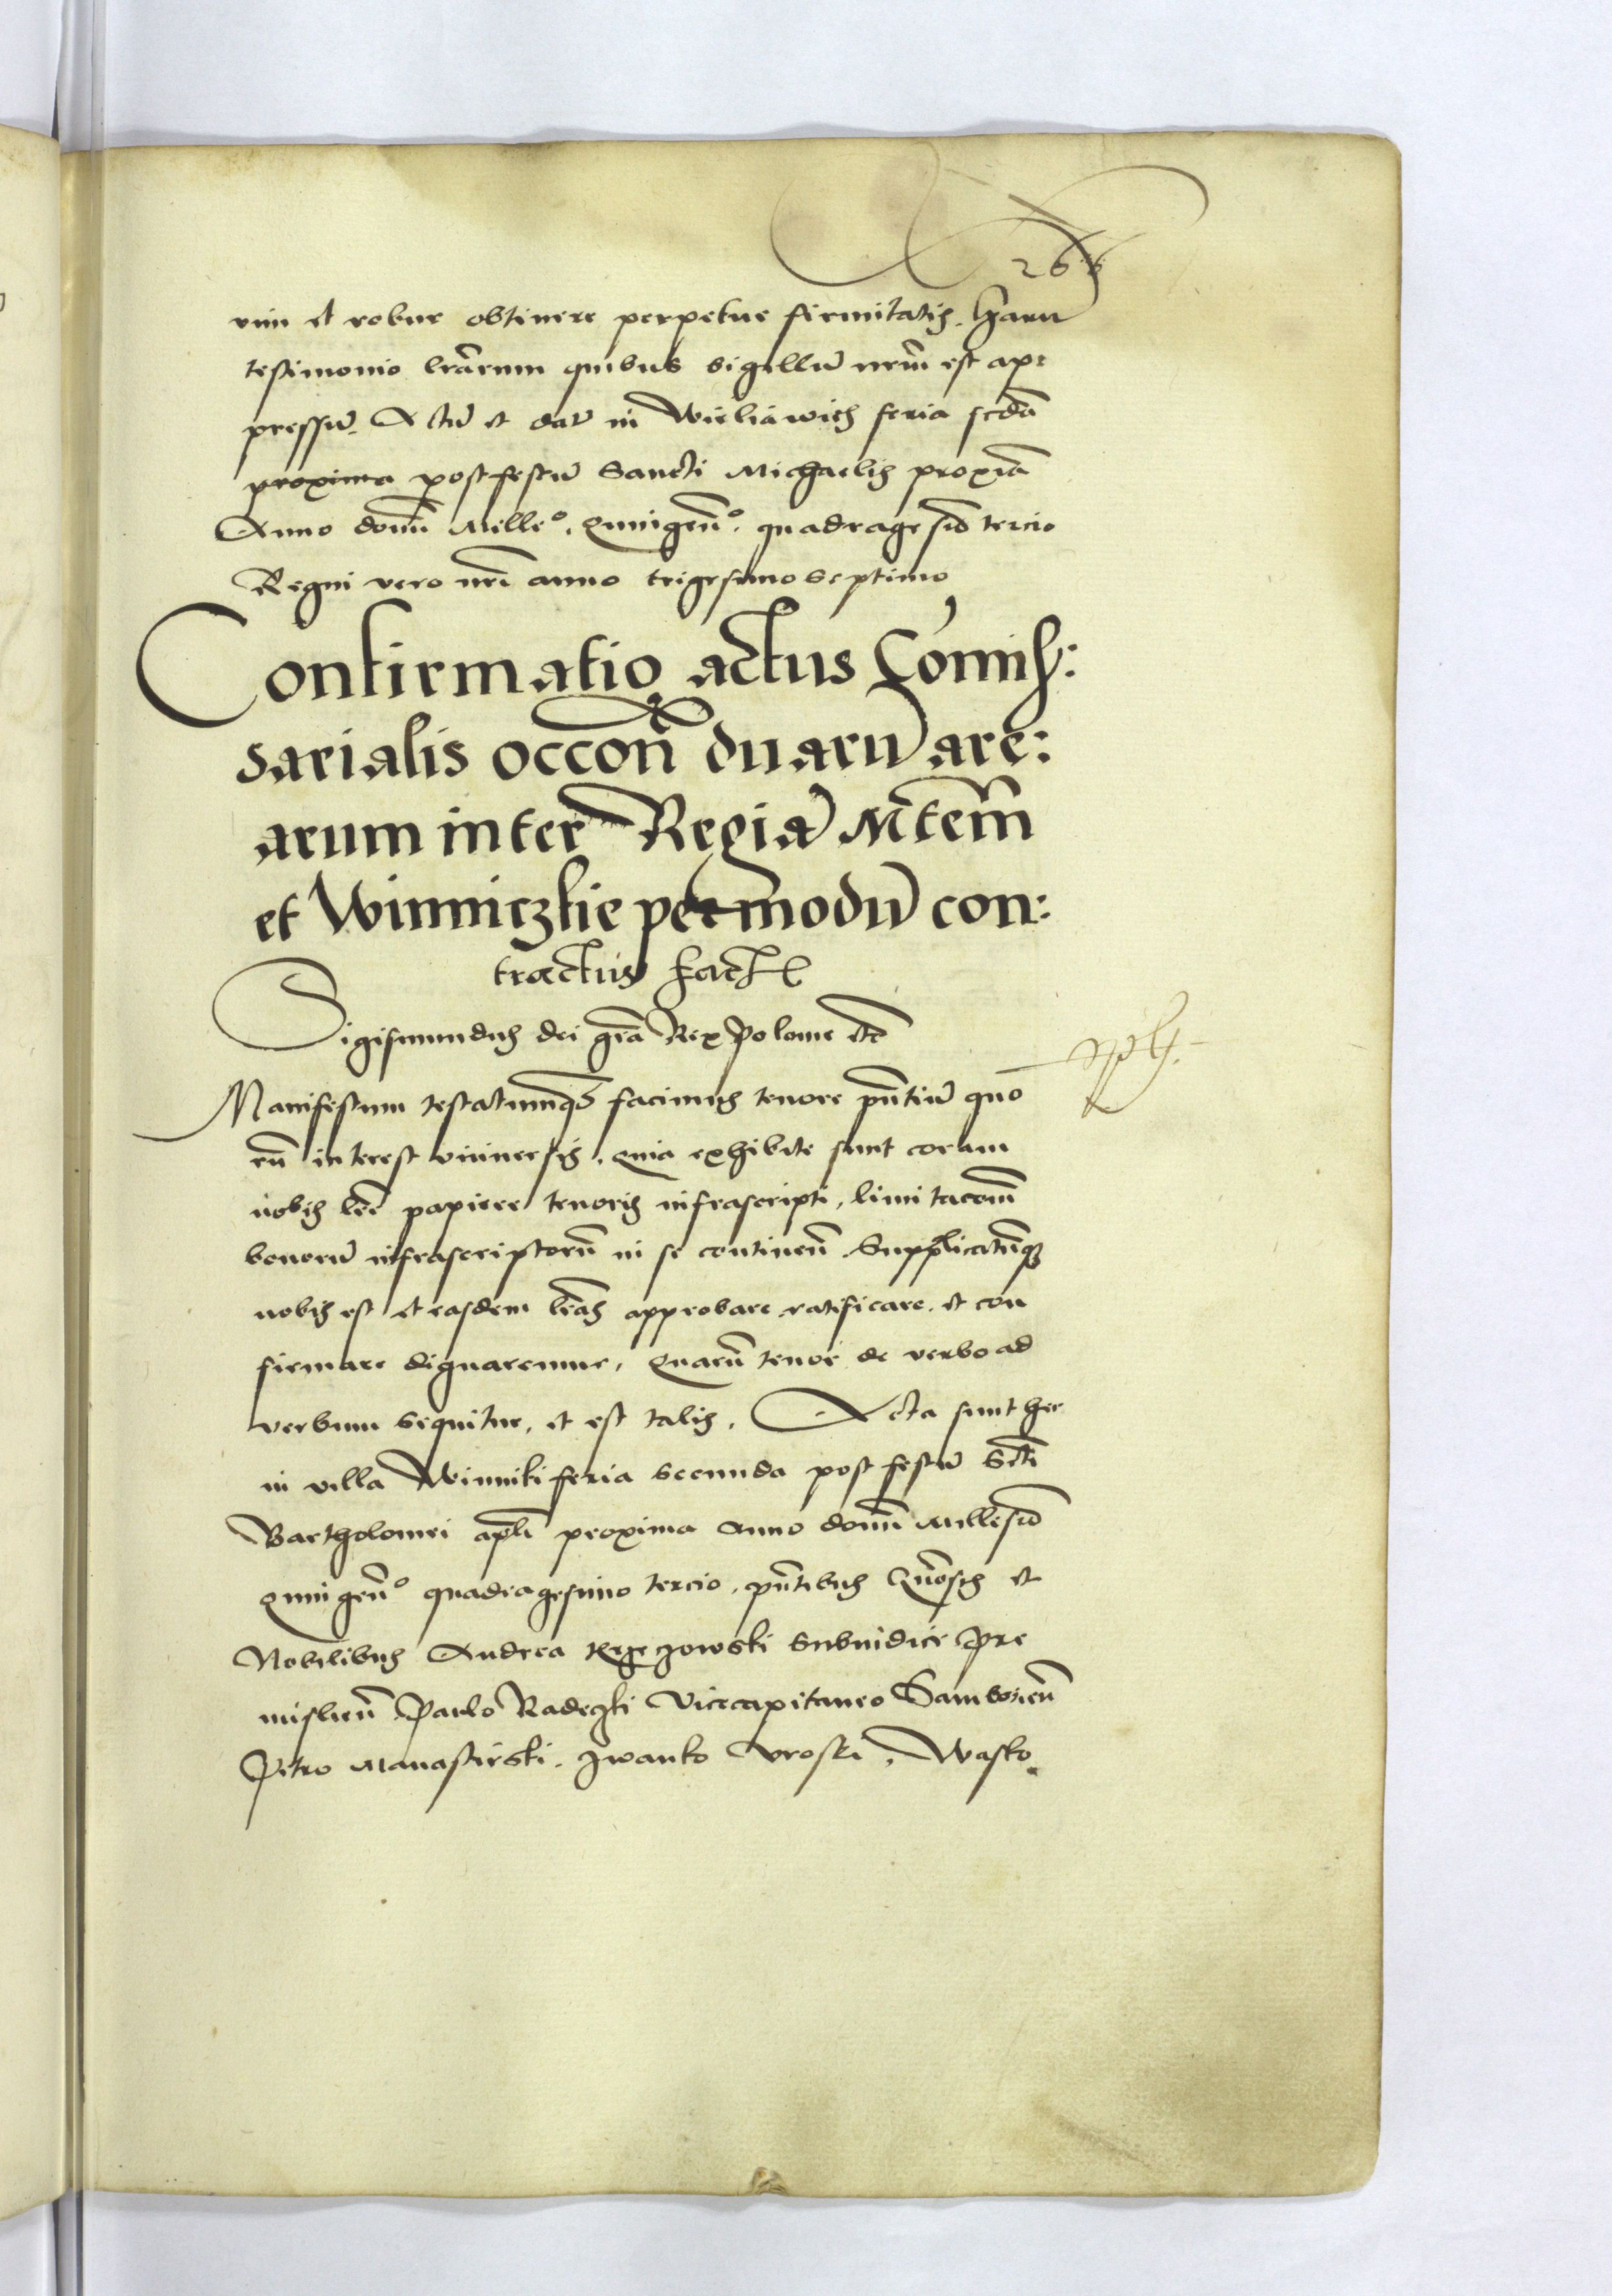 266
vim et robur obtinere perpetue firmitatis. Haru
testimonio lrarum quibus sigillū nrm̄ est ap:
pressū. Actū et datū in Wieliawich feria scdā
proxima post festū Sancti Michaelis proxiā
Anno domī Milleº. Quingenº. quadragesīo tercio
Regni vero nrī anno trigesimo septimo
Confirmatio actus Comiſ:
sarialis occōn duarū are:
arum inter Regiā Mtem̄
et Winniczkie per modū con:
tractus fact
Sigismundus dei grā Rex Polonie etc
Manifestum testatumqȝ facimus tenore pn̄tiū quo
rū interest universis. quia exhibite sunt coram
nobis lrē papiree tenoris infrascripti, limitacōnem̄
bonorū infrascriptorū in se continen̄. Supplicatūqȝ
nobis est et easdem lrās approbare ratificare et con
firmare dignaremur, Quarū tenor de verbo ad
verbum sequitur, et est talis. Acta sunt hec
in villa Winniki feria secunda post festū Scti
Bartholomei apli proxima Anno domī Millesīo
Quingenº quadragesimo tercio. pn̄tibus Gn̄osis et
Nobilibus Andrea Rzeczowski Subiudice Pre
mislien̄ Paulo Radeczki Vicecapitaneo Samborien̄
Petro Manastirski. Iwanko Vroski, Wasko